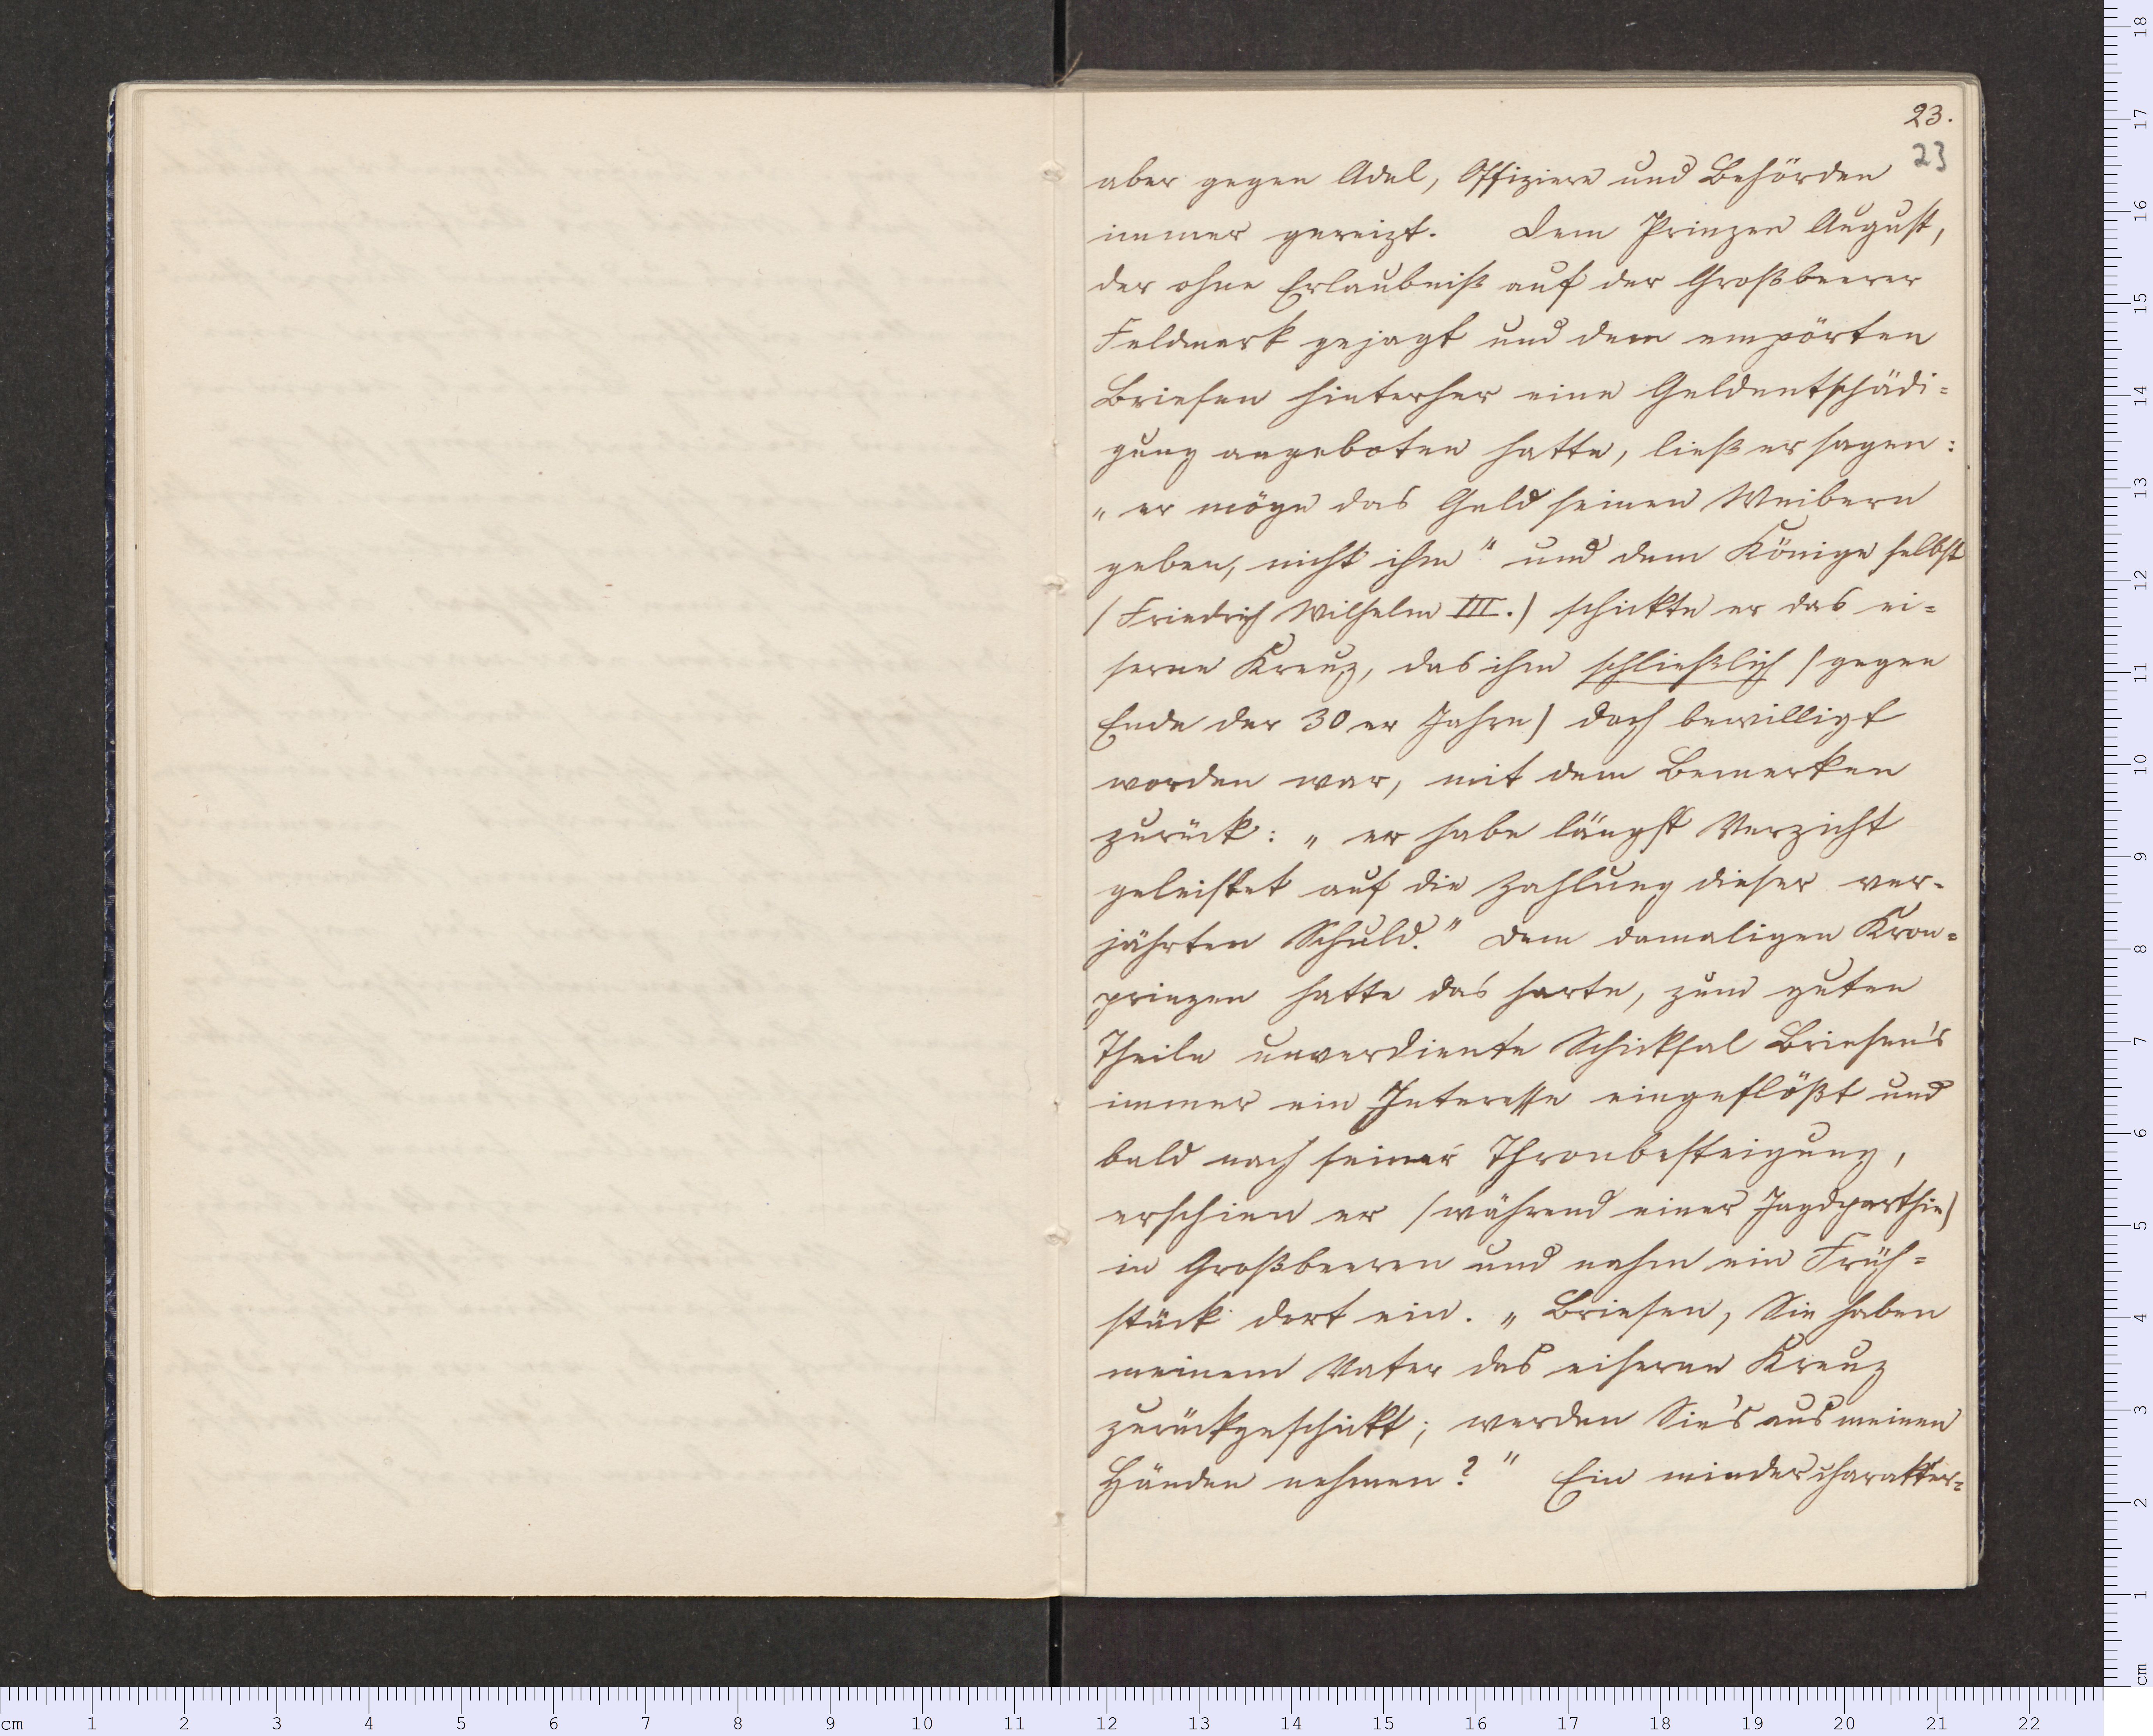 23.
23
aber gegen Adel, Offiziere und Behörden
immer gereizt. Dem Prinzen August,
der ohne Erlaubniß auf der Großbeerer
Feldmark gejagt und dem empörten
Briesen hinterher eine Geldentschädi=
gung angeboten hatte, ließ er sagen:
„er möge das Geld seinen Weibern
geben, nicht ihm" und dem Könige selbst
(Friedrich Wilhelm III.) schickte er das ei=
serne Kreuz, das ihm schließlich (gegen
Ende der 30er Jahre) doch bewilligt
worden war, mit dem Bemerken
zurück: „er habe längst Verzicht
geleistet auf die Zahlung dieser ver-
jährten Schuld." Dem damaligen Kron=
prinzen hatte das harte, zum guten
Theile unverdiente Schicksal Briesen's
immer ein Interesse eingeflößt und
bald nach seiner Thronbesteigung,
erschien er (während einer Jagdparthie)
in Großbeeren und nahm ein Früh=
stück dort ein. „Briesen, Sie haben
meinem Vater das eiserne Kreuz
zurückgeschickt; werden Sie's aus meinen
Händen nehmen?" Ein minder charakter=